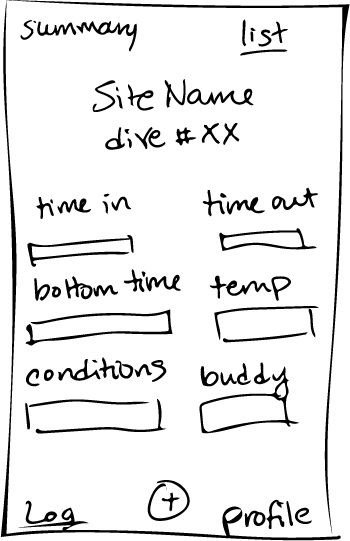 summary list
Site Name
dive #XX
time in time out
bottom time temp
conditions buddy
Log + profile